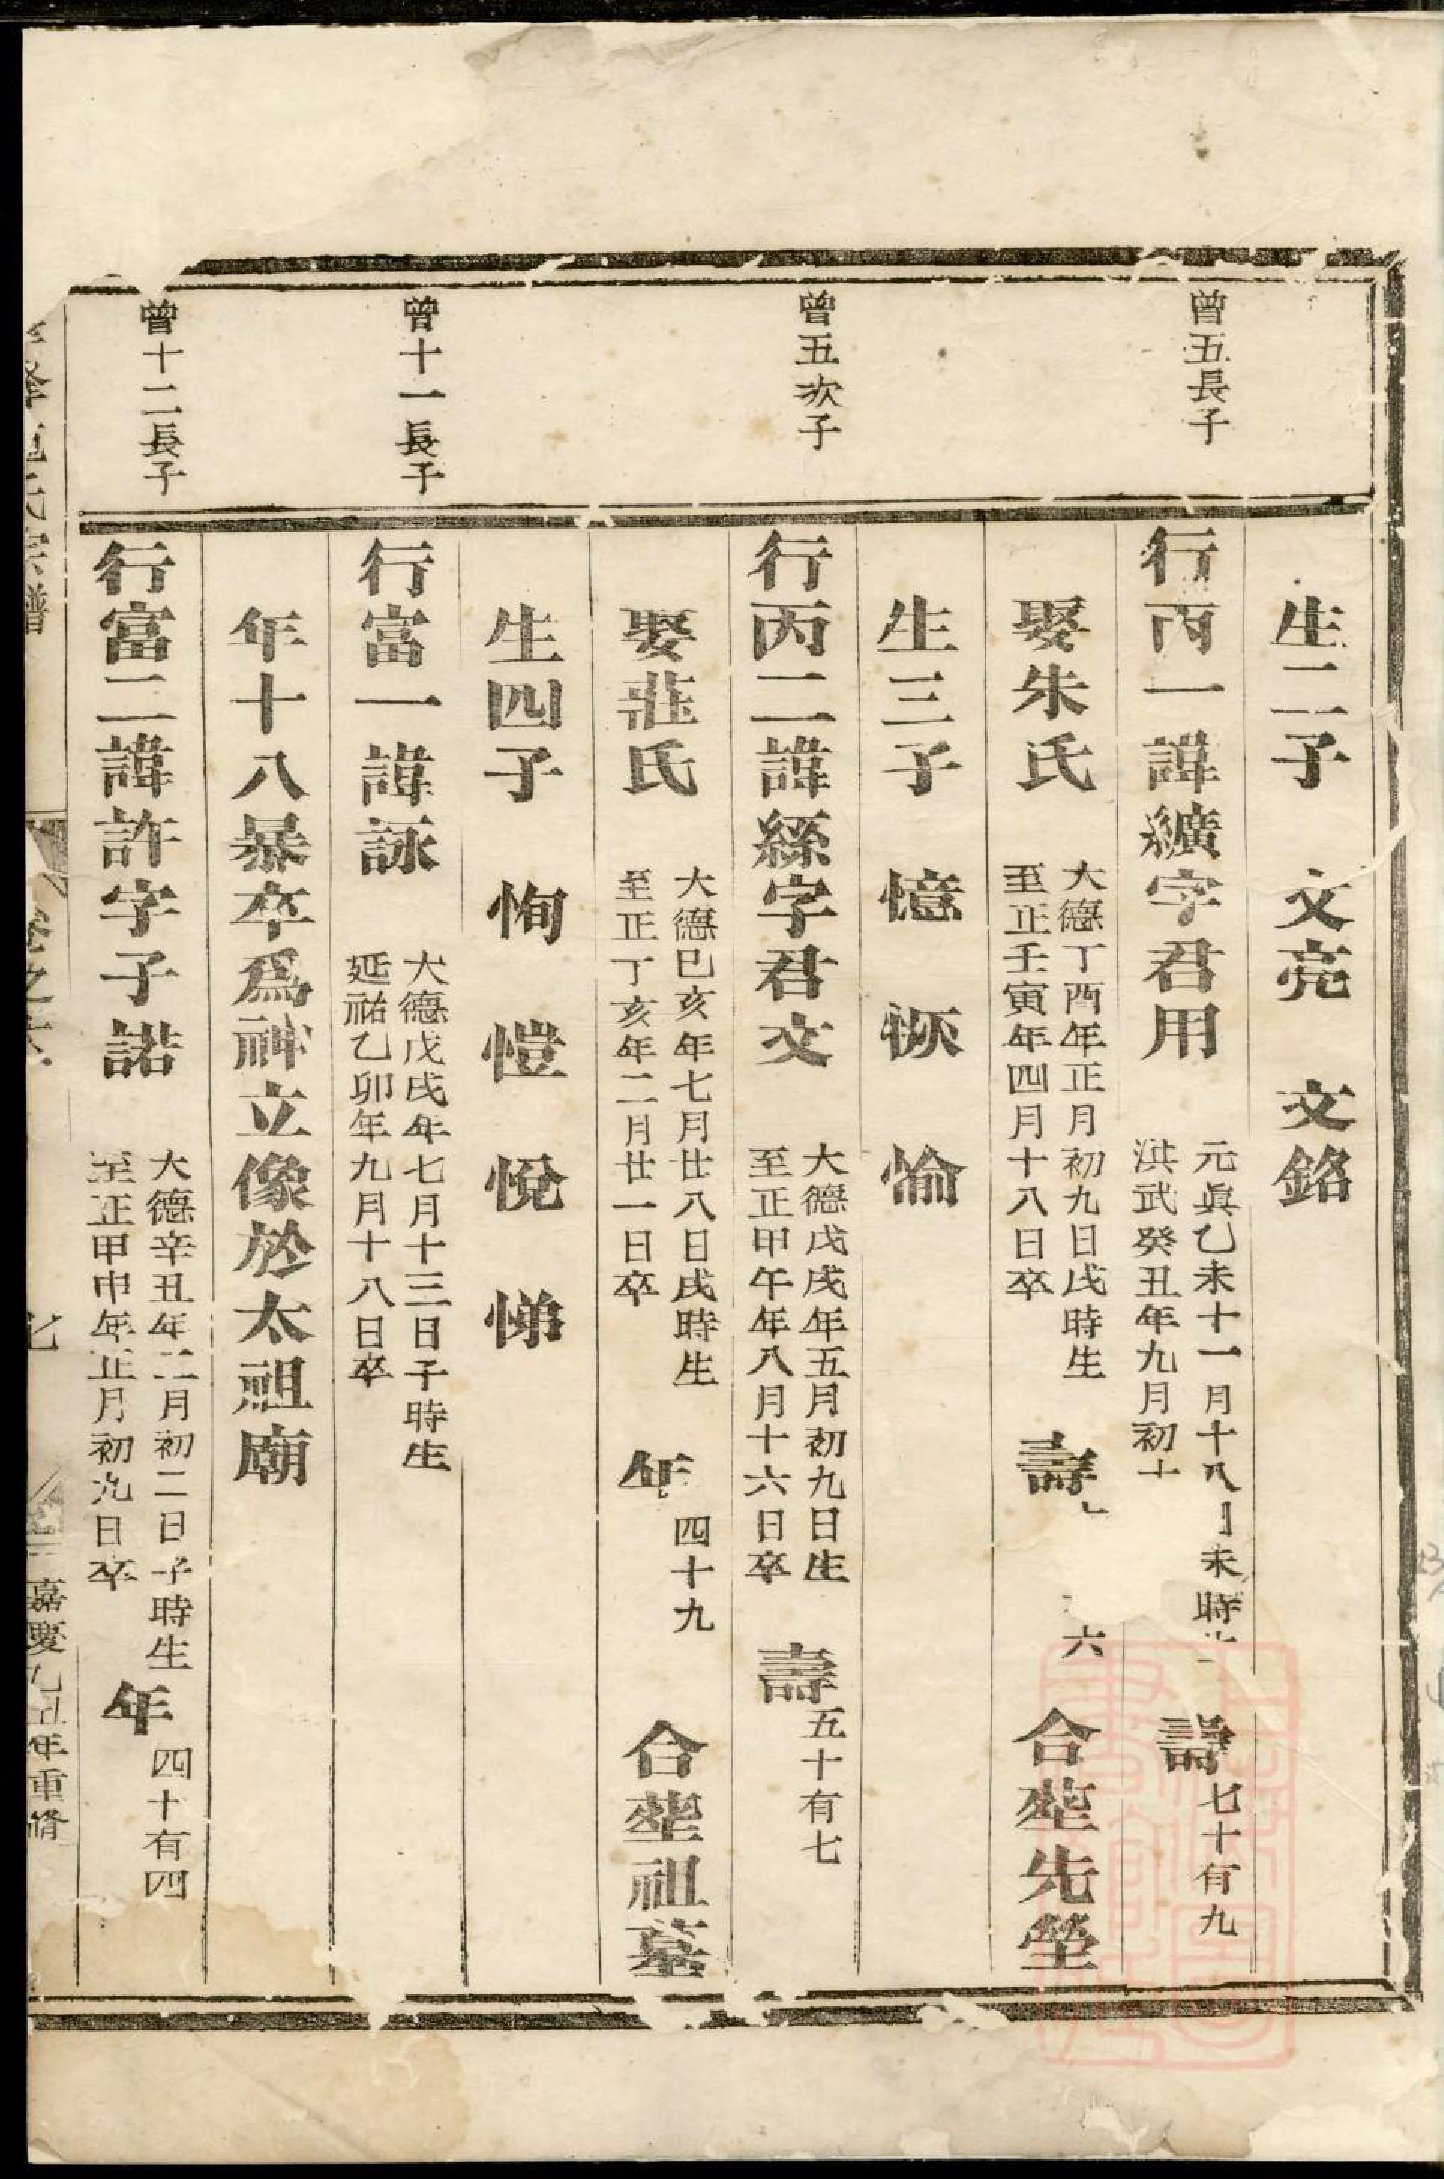 生二子　文亮　文銘
曾五長子
行丙一諱纊字君用　元眞乙未十一月十八日未時　洪武癸丑年九月初十　壽七十有九
娶朱氏　大德丁酉年正月初九日戌時生　至正壬寅年四月十八日卒　壽六　合塟先塋
生三子　憶　恢　愉
曾五次子
行丙二諱絲字君文　大德戊戌年五月初九日生　至正甲午年八月十六日卒　壽五十有七
娶莊氏　大德己亥年七月廿八日戌時生　至正丁亥年二月廿一日卒　年四十九　合塟祖墓
生四子　恂　愷　悅　悌
曾十一長子
行富一諱詠　大德戊戌年七月十三日子時生　延祐乙卯年九月十八日卒
年十八暴卒爲神立像於太祖廟
曾十二長子
行富二諱許字子諾　大德辛丑年二月初二日子時生　至正甲申年正月初九日卒　年四十有四
氏宗譜　卷之六　七　嘉慶乙丑年重脩